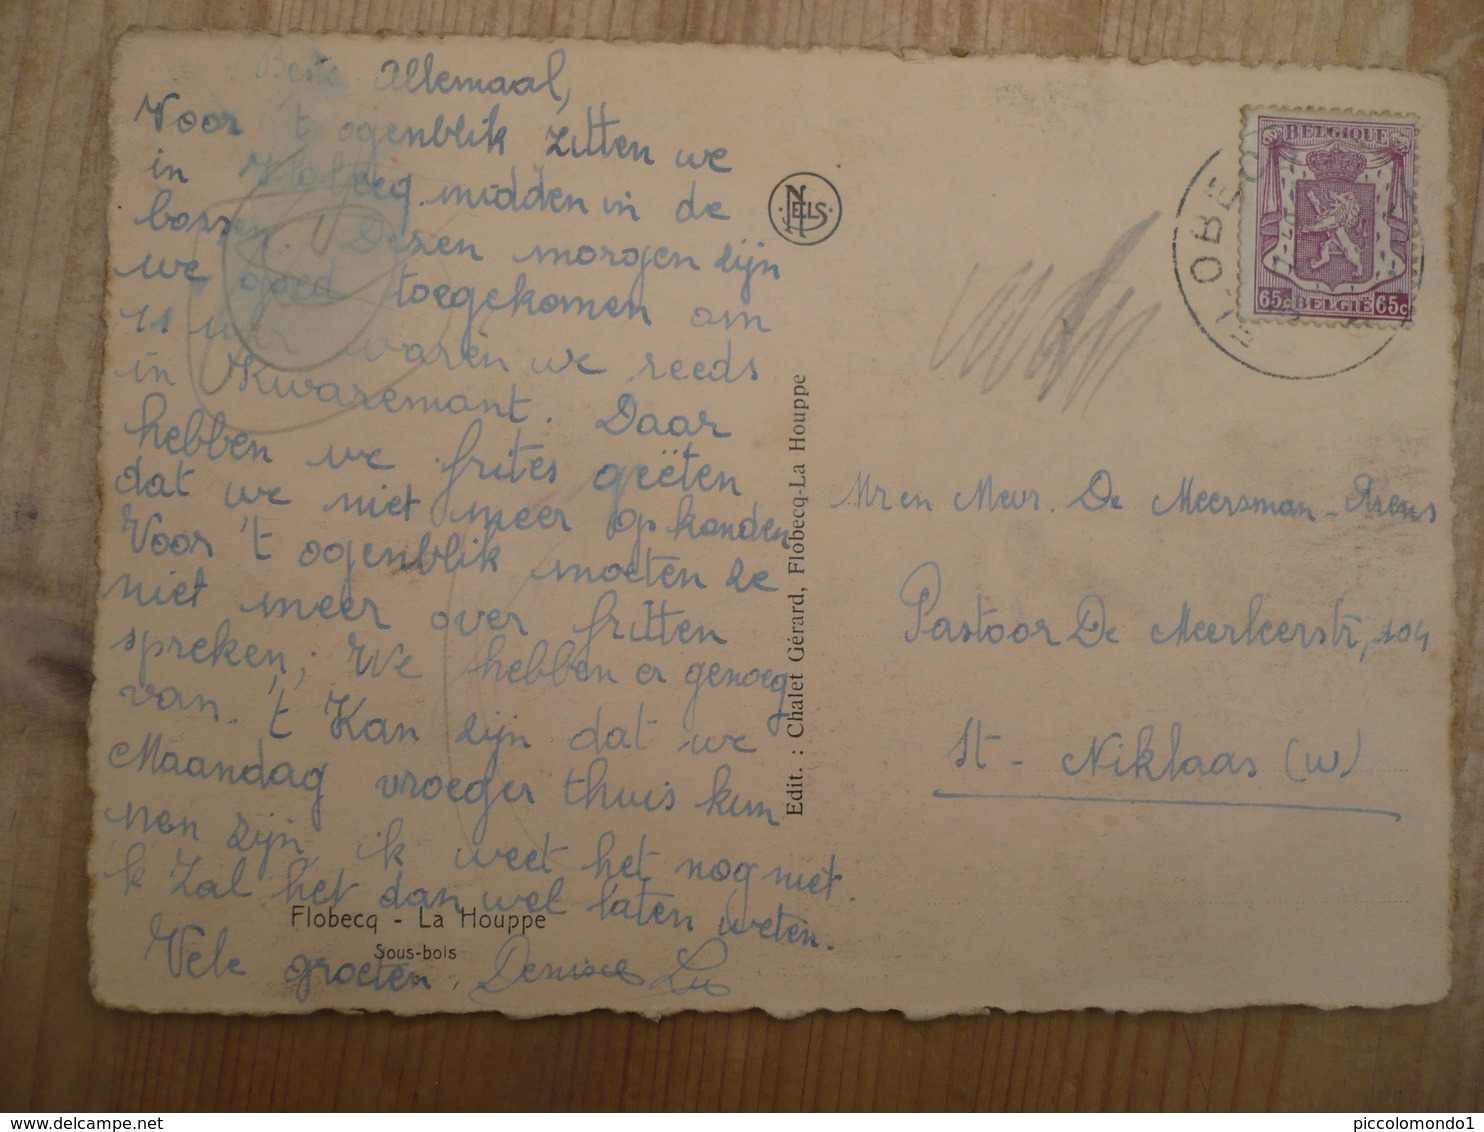 Beste Allemaal,
Voor 't ogenblik zitten we
in Flobecq midden in de
bossen. Dezen morgen zijn
we goed toegekomen om
11 uur waren we reeds
in Kwaremont. Daar
hebben we frites geëten
dat we niet meer op konden
Voor 't ogenblik moeten ze
niet meer over fritten
spreken; We hebben er genoeg
van. 't Kan zijn dat we
Maandag vroeger thuis kun
nen zijn, ik weet het nog niet.
k Zal het dan wel laten weten.
Vele groeten, Denise Luc
Flobecq - La Houppe
Sous-bois
Edit. : Chalet Gérard, Flobecq-La Houppe
NELS
BELGIQUE
65c BELGIË 65c
FLOBECQ
Mr en Mevr. De Meersman - Arens
Pastoor De Meerleerstr, 104
St - Niklaas (W)
piccolomondo1